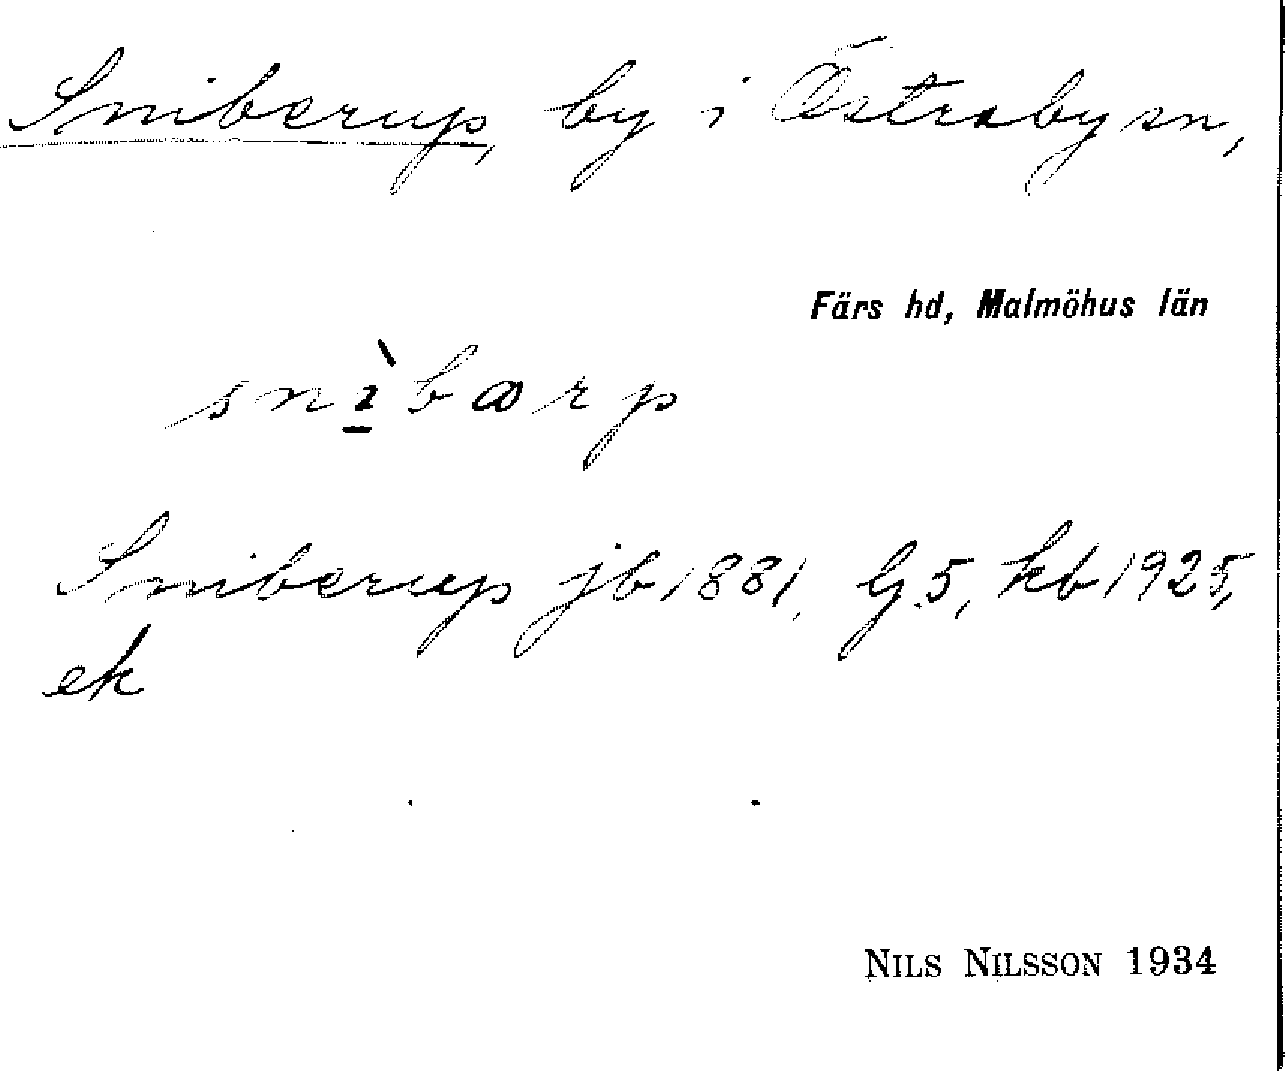 Sniberup, by i Östraby sn,
Färs hd, Malmöhus län
snìbærp
Sniberup jb 1881, G.5, kb 1925,
ek
NILS NILSSON 1934